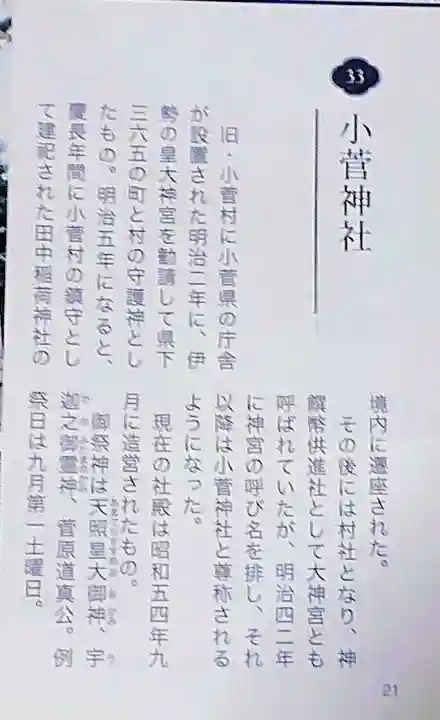 33
小菅神社
旧・小菅村に小菅県の庁舎
が設置された明治二年に、伊
勢の皇大神宮を勧請して県下
三六五の町と村の守護神とし
たもの。明治五年になると、
慶長年間に小菅村の鎮守とし
て建祀された田中稲荷神社の
境内に遷座された。
その後には村社となり、神
饌幣供進社として大神宮とも
呼ばれていたが、明治四二年
に神宮の呼び名を排し、それ
以降は小菅神社と尊称される
ようになった。
現在の社殿は昭和五四年九
月に造営されたもの。
御祭神は天照皇大御神、宇
迦之御霊神、菅原道真公。例
祭日は九月第一土曜日。
21